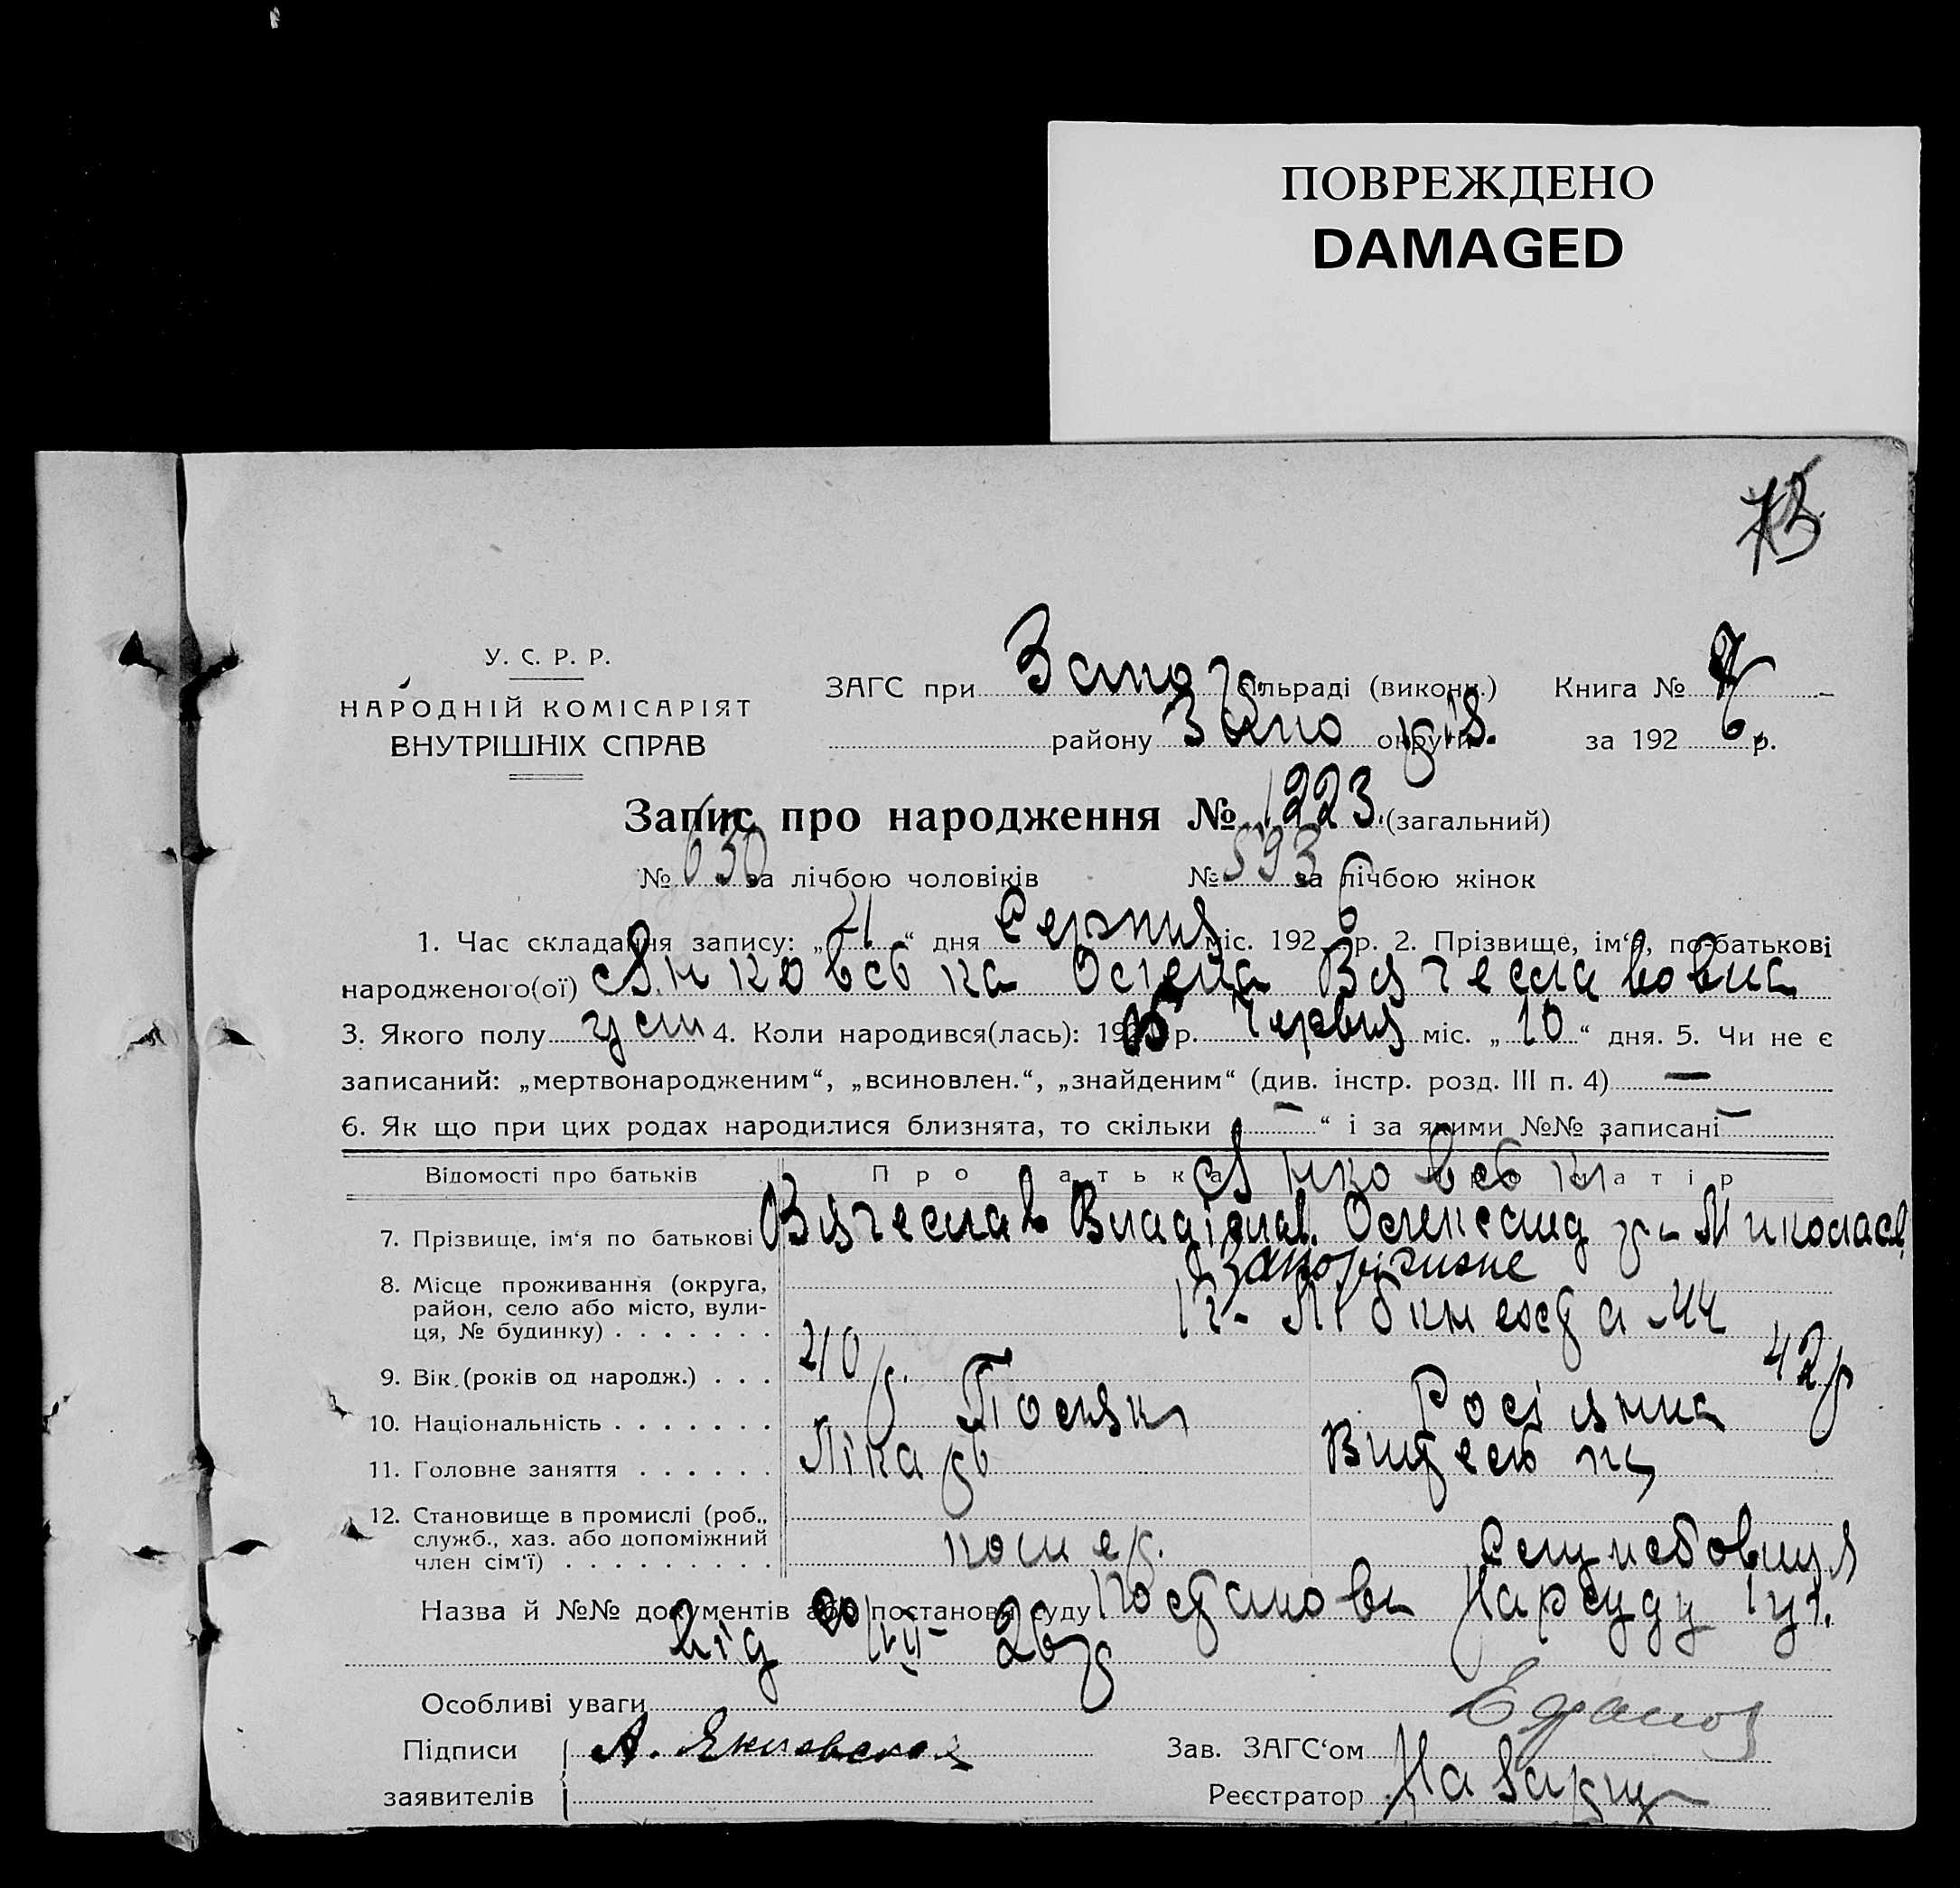 ПОВРЕЖДЕНО
DAMAGED
73
У. С. Р. Р.
НАРОДНІЙ КОМІСАРІЯТ
ВНУТРІШНІХ СПРАВ
ЗАГС при Запор. сільраді (викони.) Книга №
району Запоріз. округи за 1926 р.
Запис про народження № 1223. (загальний)
№ 630 за лічбою чоловіків № 593 за лічбою жінок
1. Час складання запису: „21“ дня Серпня міс. 1926 р. 2. Прізвище, ім‘я, по-батькові
народженого(ої) Янковська Олена Вячеславовна
3. Якого полу жен 4. Коли народився(лась): 192 р. Червня міс. „10“ дня. 5. Чи не є
записаний: „мертвонародженим“, „всиновлен.“, „знайденим“ (див. інстр. розд. III п. 4) —
6. Як що при цих родах народилися близнята, то скільки „—“ і за якими №№ записані —
Відомості про батьків Про батька Про матір
Янковські
7. Прізвище, ім‘я по батькові Вячеслав Владіслав. Олександра Миколаєв
8. Місце проживання (округа, район, село або місто, вулиця, № будинку) Запоріжжє
9. Вік (років од народж.) 40 р. 42 р
10. Національність Поляк Росіянка
11. Головне заняття Лікарь
12. Становище в промислі (роб., служб., хаз. або допоміжний член сім‘ї)
Назва й №№ документів або постанови суду Постанова Нарсуду 1 уч.
від 26 р
Особливі уваги
Підписи А. Янковская Зав. ЗАГС‘ом
заявителів Реєстратор